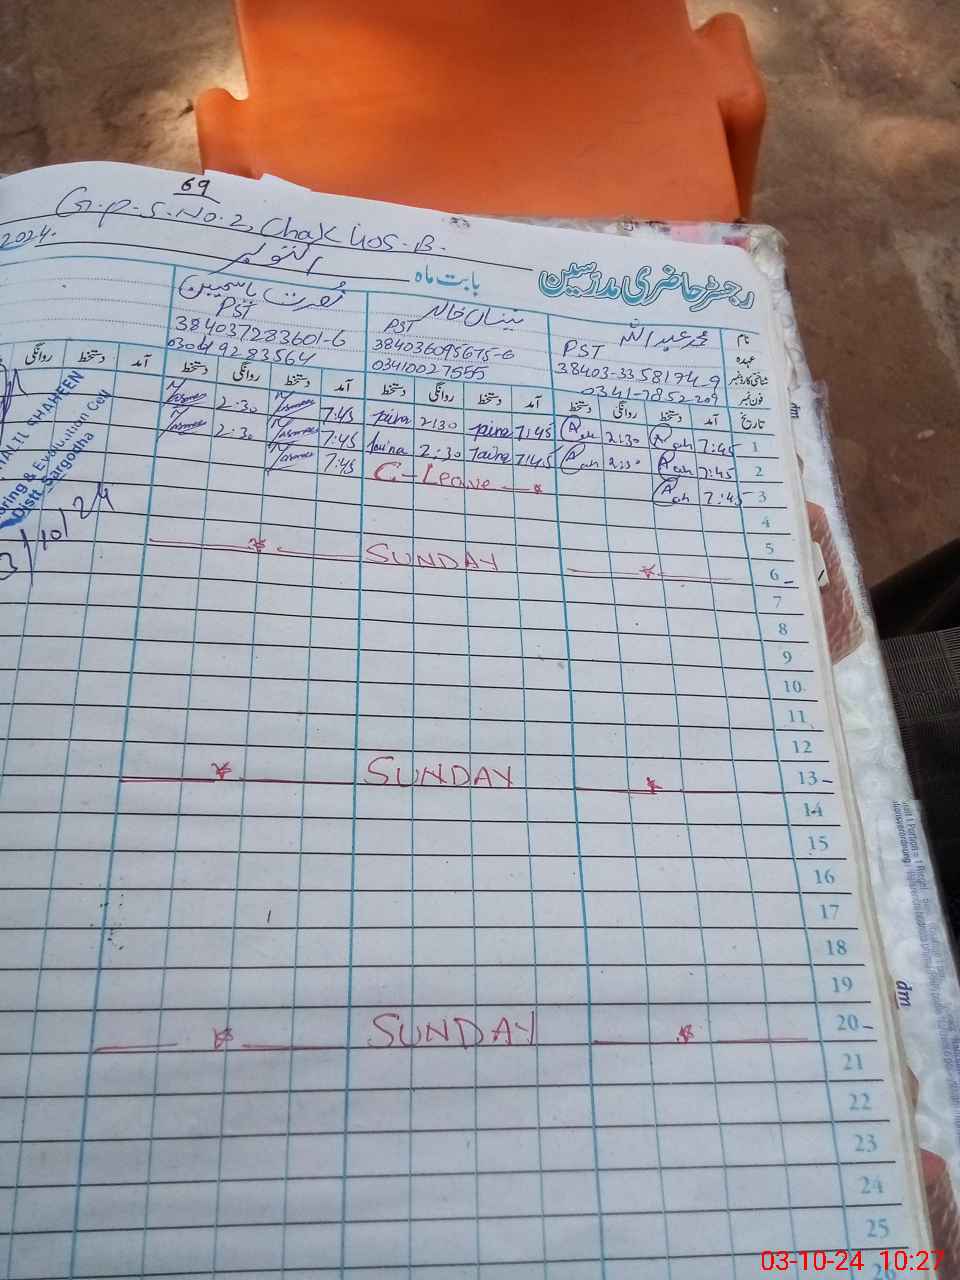 69
G.P.S.No.2, Chak 40S.B.
2024.
رجسٹر حاضری مدرسین بابت ماہ اکتوبر
نام محمد عبداللہ خالد نصرت یاسمین
عہدہ PST PST PST
شناختی کارڈ نمبر 38403-3358174-9 384036095675-6 384037283601-6
فون نمبر 0341-7852209 03410027555 03049283564
تاریخ آمد دستخط روانگی دستخط آمد دستخط روانگی دستخط آمد دستخط روانگی دستخط آمد دستخط روانگی
1 7:45 2:30 7:45 2:30 7:45 2:30
2 7:45 2:30 7:45 2:30 7:45 2:30
3 7:45 C-Leave 7:45
4
5
6 SUNDAY
7
8
9
10
11
12
13 SUNDAY
14
15
16
17
18
19
20 SUNDAY
21
22
23
24
25
26
SHAHEEN
oring & Evaluation Cell
Distt. Sargodha
3/10/24
dm
03-10-24 10:27